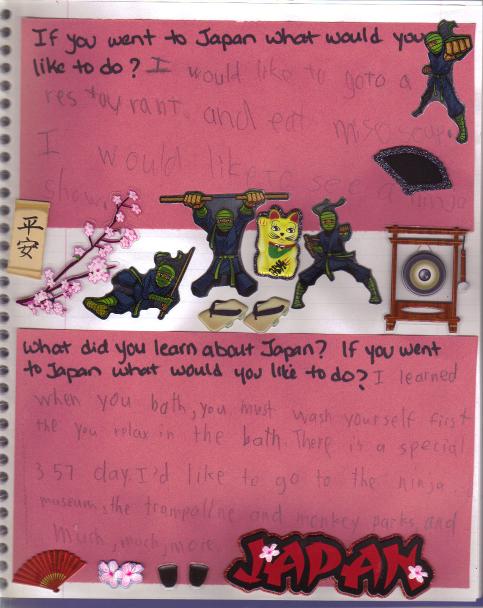 If you went to Japan what would you
like to do? I would like to goto a
restaurant and eat miso soup.
I would like to see a ninja
show.
平
安
What did you learn about Japan? If you went
to Japan what would you like to do? I learned
when you bath, you must wash yourself first
the you relax in the bath. There is a special
3 5 7 day. I'd like to go to the ninja
museum, the trampoline and monkey parks, and
much, much, more.
JAPAN